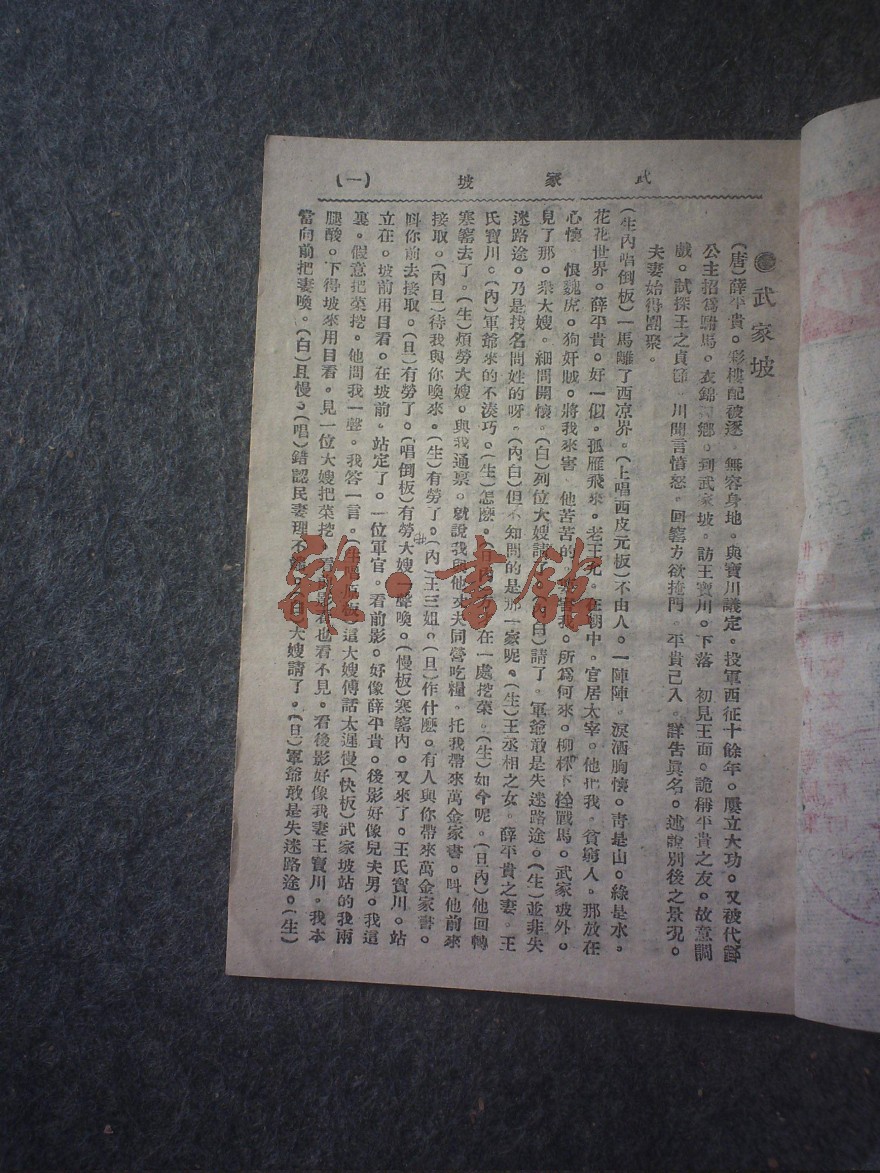 武家坡 (一)
武家坡
(唐)薛平貴。彩樓配被逐 無容身地。與寶川議定。投軍西征十餘年。屢立大功。又被代
公主招為駙馬。衣錦 鄉。到武家坡。訪王寶川。下落 初見王面。詭稱平貴之友。故意調
戲。試探王之貞節 川聞言憤怒。回窰方欲掩門。平貴已入。詳告眞名。述說別後之景况。
夫妻始得團聚。
(生內唱倒板)一馬離了西凉界。(上唱西皮元板)不由人。一陣陣。淚洒胸懷。青是山。綠是水。
花花世界。薛平貴。好一個。孤雁飛來。老王允。在朝中。官居太宰。他把我。貧窮人。那放在
心懷 恨魏虎。狗奸賊。將我來害 他苦苦的 害我。所為何來。柳林下拴戰馬。武家坡外。
見了那。衆大嫂。細問開懷。(白)列位大嫂請了。(內白)請了。軍爺敢是失迷路途。(生)並非失
迷路途。乃是找名問姓的呀。(內白)但不知問的是那一家呢。(生)王丞相之女。薛平貴之妻。王
氏寶川。(內)軍爺來的不湊巧。(生)怎麽。(旦內) 在一處挖菜。(生)如今呢。(旦內)他回轉
寒窰去了。(生)煩勞大嫂。與我通禀。就說我與他丈夫同營吃糧。托我帶來萬金家書。叫他前來
接取。(內旦)待我與你喚來。(生)有勞了。(內)王三姐。(旦)作什麽。有人與你帶來萬金家書。
叫你前去接取。(旦)有勞了。(唱倒板)有勞大嫂一聲喚。(慢板)寒窰內。又來了。王氏寶川。站
立在。坡前用目看。在坡前。站定了。一位軍官。看前影。好像薛平貴。後影好像兒夫男。我這
裏。假意把菜挖。他問我一聲。我答一言。 這大嫂傳話太遲慢(快板)武家坡站的我兩
腿酸。下得坡來用目看。見一位大嫂把菜挖 看前影看也看不見。看後影好像我妻王寶川。我本
當向前把妻喚。(白)且慢。(唱)錯認民妻理不 大嫂請了。(旦)軍爺敢是失迷路途。(生)
雜·書館